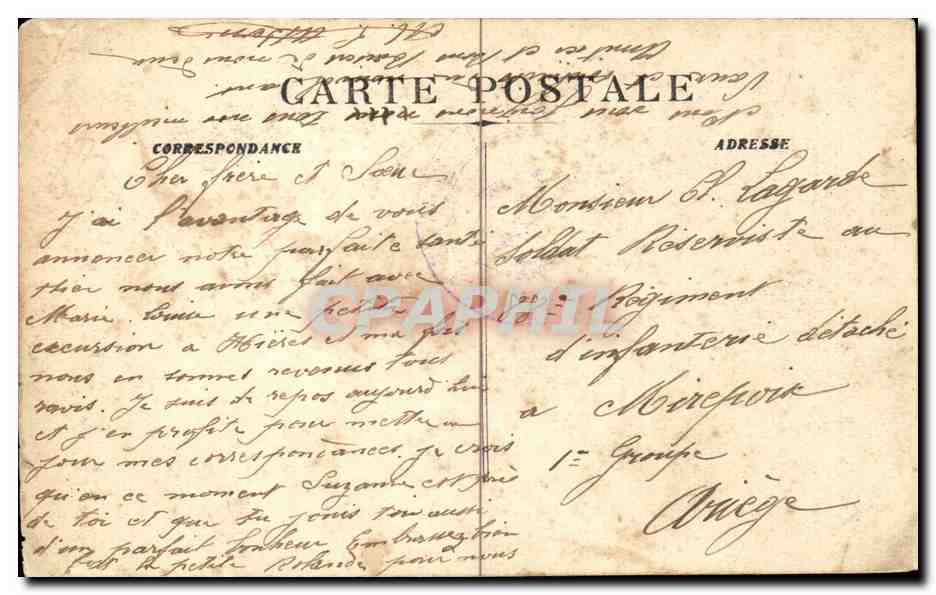 CARTE POSTALE
CORRESPONDANCE
Cher frère et Sœur
J'ai l'avantage de vous
annoncer notre parfaite santé
hier nous avons fait avec
Marie Louise une petite
excursion a Hières et ma foi
nous en sommes revenus tout
ravis. Je suis de repos aujourd hui
et j'en profite pour mettre a
jour mes correspondances. je crois
qu'en ce moment Suzanne est près
de toi et que tu jouis toi aussi
d'un parfait bonheur Embrassez bien
la petite Rolande pour nous
ADRESSE
Monsieur Lagarde
Soldat Réserviste au
Régiment
d'infanterie détaché
a Mirepoix
1e Groupe
Ariège
CPAPHIL